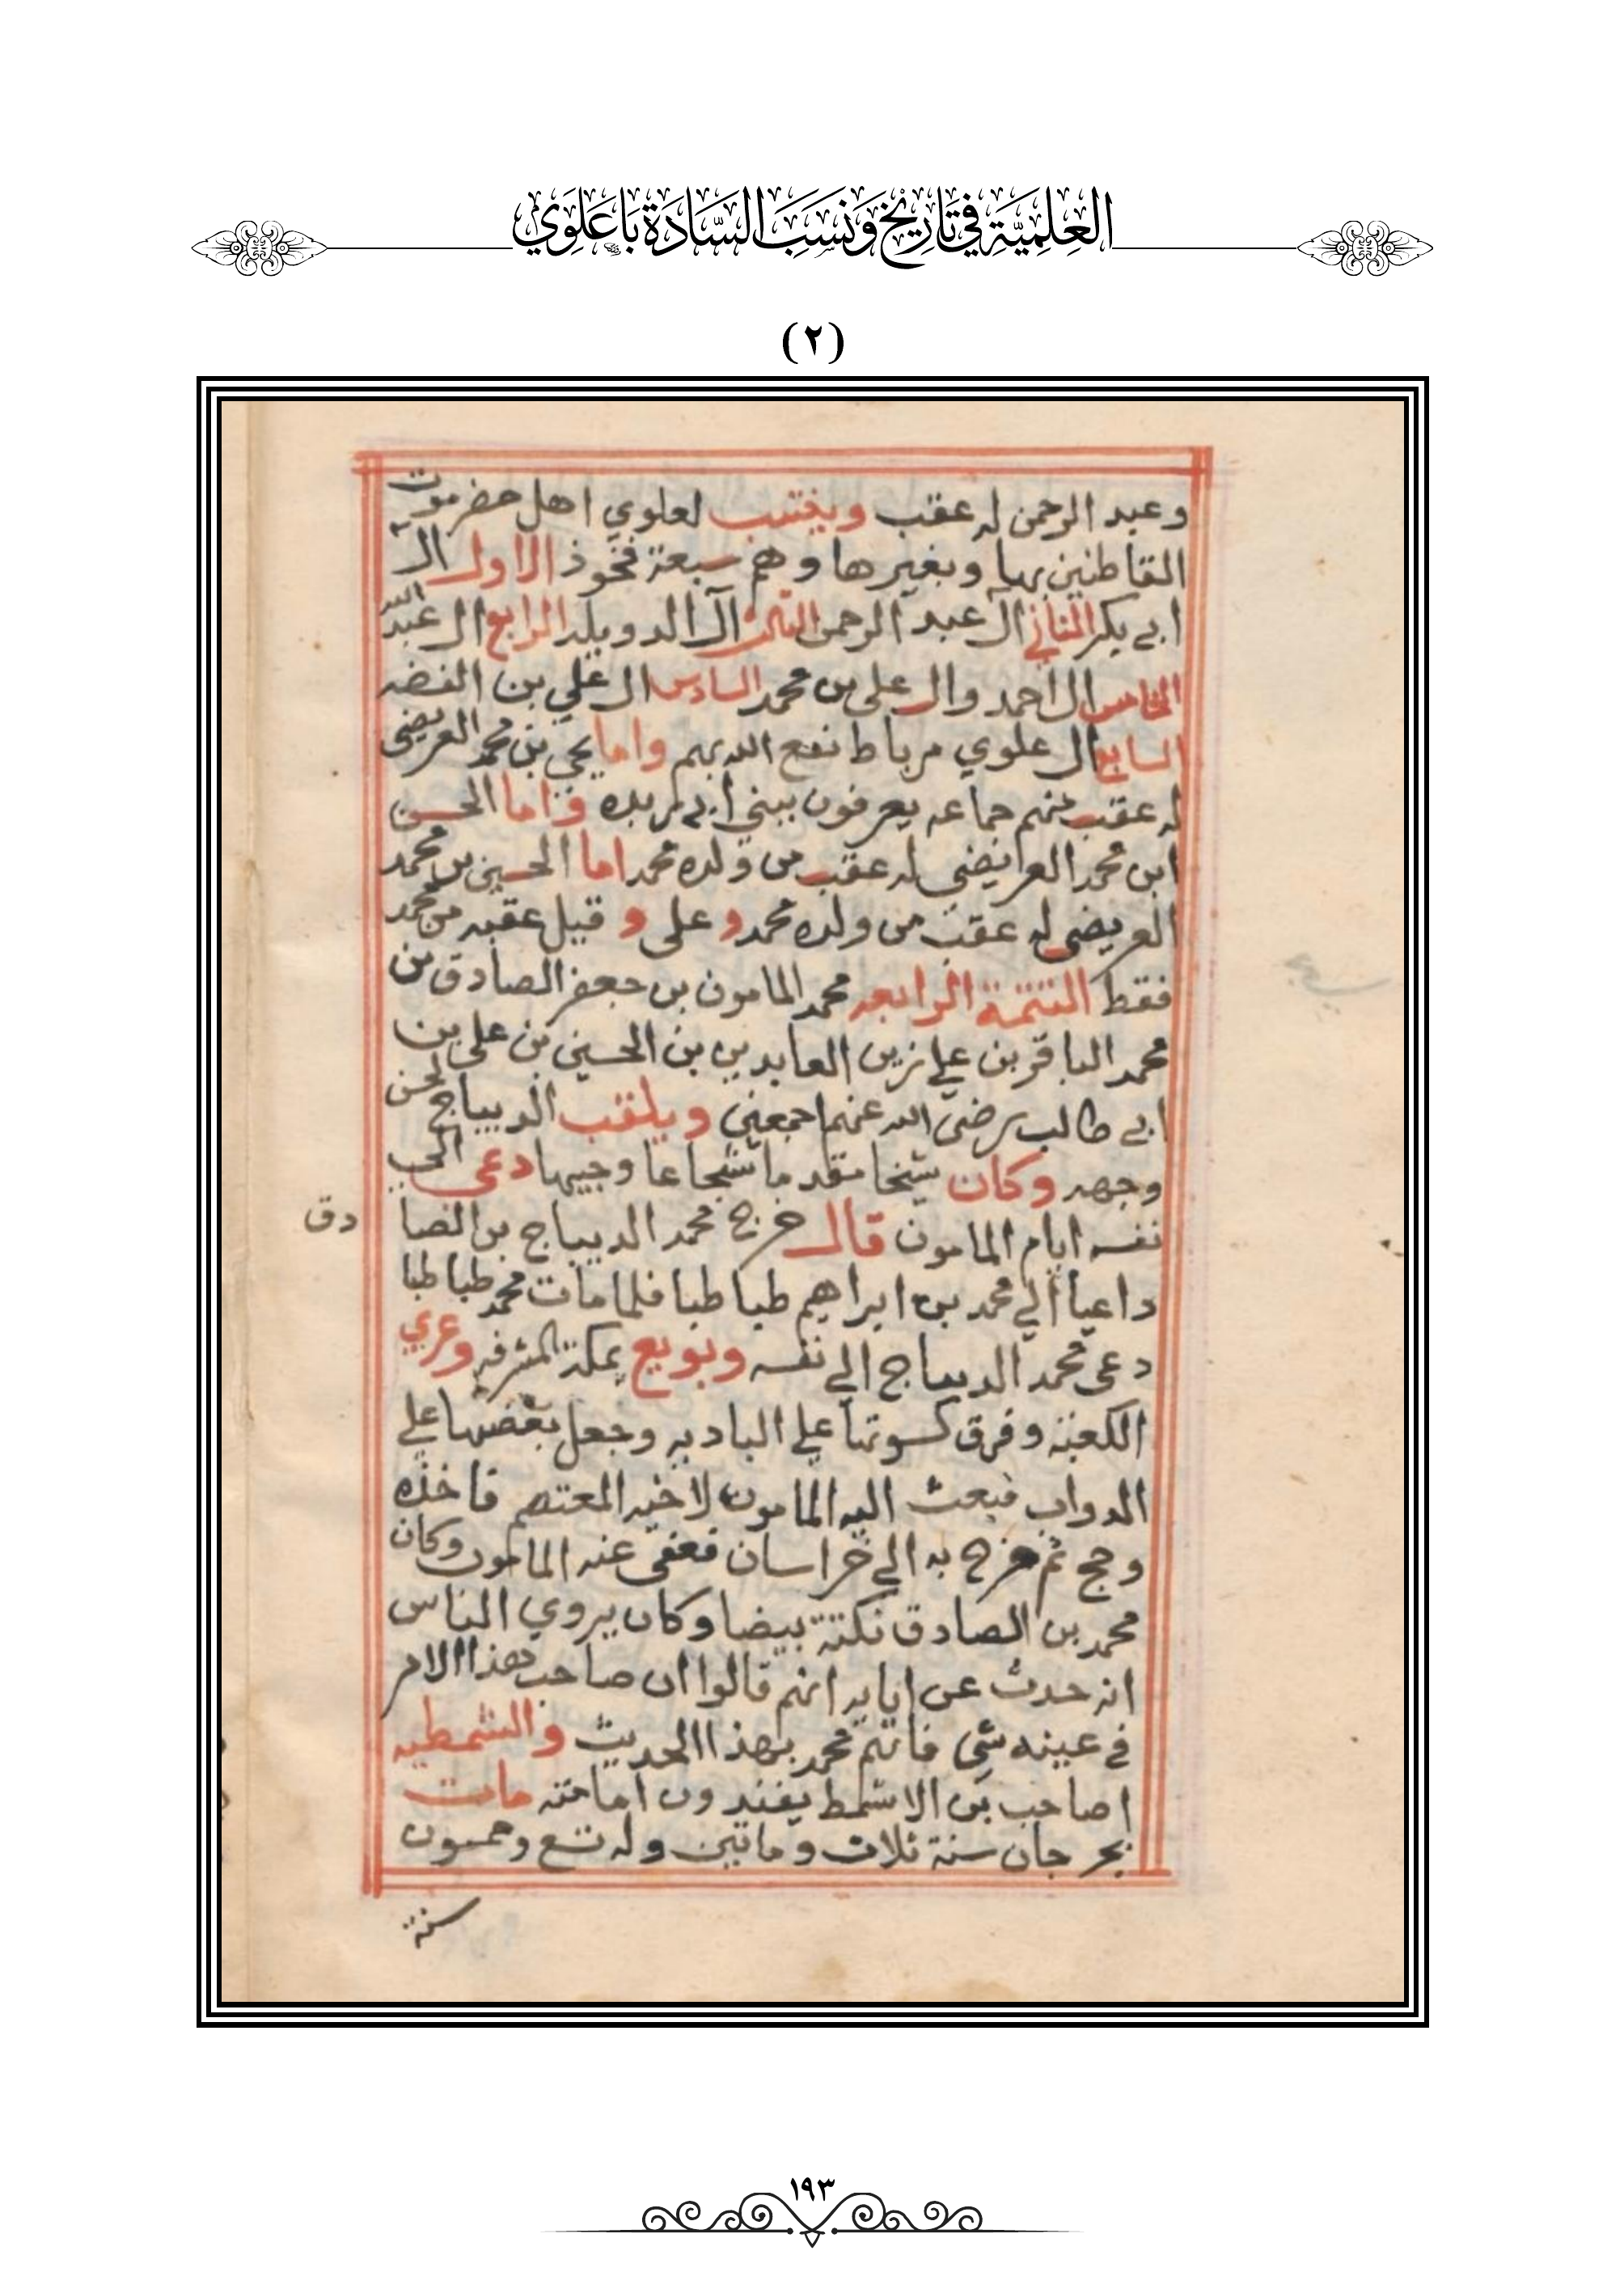 العِلمِيَّة فِي تَارِيخ وَنَسَبِ السَّادَة بَاعَلَوِي
(٢)
وعبد الرحمن له عقب وينتسب لعلوي اهل حضرموت
القاطنين بها وبغيرها وهم سبعة فخوذ الاول ال
ابي بكر الثاني ال عبد الرحمن الثالث آل الدويله الرابع ال عبد الله
الخامس ال احمد وال علي بن محمد السادس ال علي بن الفقه
السابع ال علوي مرباط نفع الله بهم واما يحيى بن محمد العريضي
له عقب منهم جماعه يعرفون ببني ابي واما الحسن
ابن محمد العريضي له عقب من ولده محمد اما الحسين بن محمد
العريضي له عقب من ولده محمد و علي و قيل عقبه من محمد
فقط التتمة الرابعه محمد المامون بن جعفر الصادق بن
محمد الباقر بن علي زين العابدين بن الحسين بن علي بن
ابي طالب رضي الله عنهم اجمعين ويلقب الديباج لحسن
وجهه وكان شيخا مقدما شجاعا وجيها دعي الى
نفسه ايام المامون قال خرج محمد الديباج بن الصا
دق
داعيا الي محمد بن ابراهيم طبا طبا فلما مات محمد طبا طبا
دعى محمد الديباج الي نفسه وبويع بمكة المشرفه وعري
الكعبة وفرق كسوتها علي الباديه وجعل بعضها علي
الدواب فبعث اليه المامون لاخيه المعتصم فاخذه
وحج ثم خرج به الي خراسان فعفى عنه المامون وكان
محمد بن الصادق نكتة بيضا وكان يروي الناس
انه حدث عن ابايه انهم قالوا ان صاحب هذا الامر
في عينه شي فاتهم محمد بهذا الحديث والشمطيه
اصاحب بن الاشمط امامته مات
بجرجان سنة ثلاث وماتين وله تسع وخمسون
سنة
١٩٣